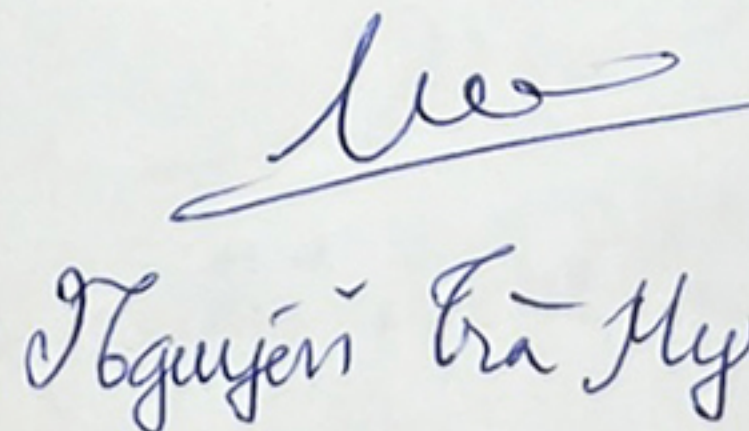 Nguyễn Trà My